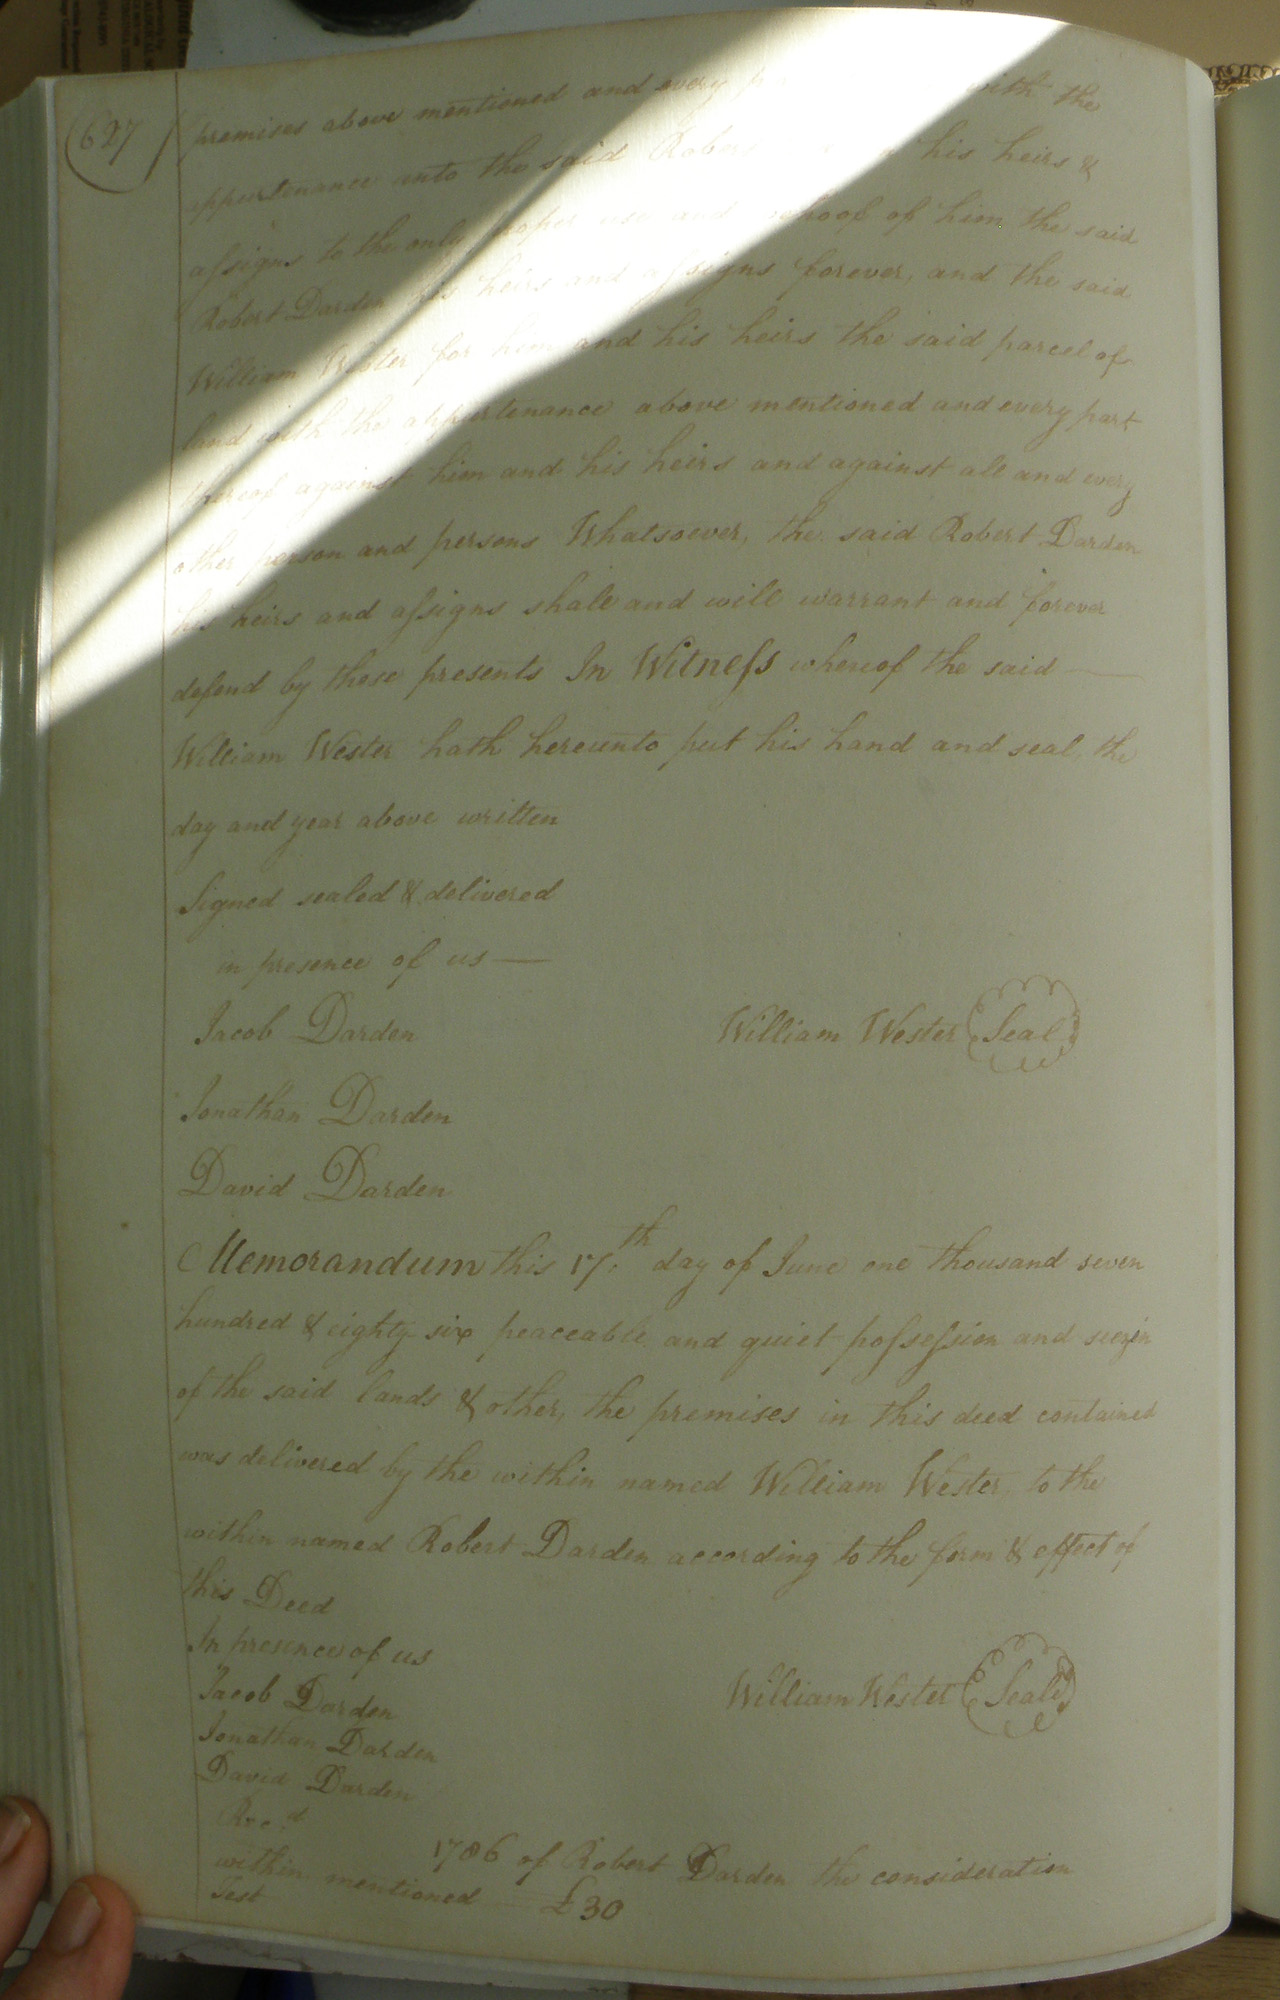 627
premises above mentioned and every with the
appurtenance unto the said Robert his heirs &
assigns to the only proper use and behoof of him the said
Robert Darden his heirs and assigns forever, and the said
William Wester for him and his heirs the said parcel of
land with the appurtenance above mentioned and every part
thereof against him and his heirs and against all and every
other person and persons Whatsoever, the said Robert Darden
his heirs and assigns shall and will warrant and forever
defend by those presents In Witness whereof the said
William Wester hath hereunto put his hand and seal, the
day and year above written
Signed sealed & delivered
in presence of us —
Jacob Darden William Wester Seal
Jonathan Darden
David Darden
Memorandum this 17th day of June one thousand seven
hundred & eighty six peaceable and quiet possession and seezin
of the said lands & other, the premises in this deed contained
was delivered by the within named William Wester, to the
within named Robert Darden according to the form & effect of
this Deed
In presence of us
Jacob Darden William Wester Seal
Jonathan Darden
David Darden
Rec.d 1786 of Robert Darden the consideration
within mentioned — £30
Test